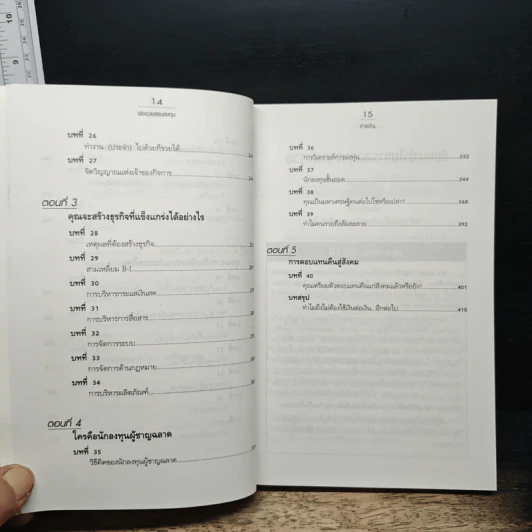 10
9
14
พ่อรวยสอนลงทุน
บทที่ 26
ทำงาน (ประจำ) ไปด้วยก็รวยได้
บทที่ 27
จิตวิญญาณแห่งเจ้าของกิจการ
ตอนที่ 3
คุณจะสร้างธุรกิจที่แข็งแกร่งได้อย่างไร
บทที่ 28
เหตุผลที่ต้องสร้างธุรกิจ
บทที่ 29
สามเหลี่ยม B-I
บทที่ 30
การบริหารกระแสเงินสด
บทที่ 31
การบริหารการสื่อสาร
บทที่ 32
การจัดการระบบ
บทที่ 33
การจัดการด้านกฎหมาย
บทที่ 34
การบริหารผลิตภัณฑ์
ตอนที่ 4
ใครคือนักลงทุนผู้ชาญฉลาด
บทที่ 35
วิธีคิดของนักลงทุนผู้ชาญฉลาด
15
สารบัญ
บทที่ 36
การวิเคราะห์การลงทุน 332
บทที่ 37
นักลงทุนชั้นยอด 344
บทที่ 38
คุณเป็นมหาเศรษฐีคนต่อไปใช่หรือเปล่า? 368
บทที่ 39
ทำไมคนรวยถึงล้มละลาย 392
ตอนที่ 5
การตอบแทนคืนสู่สังคม
บทที่ 40
คุณเตรียมตัวตอบแทนคืนแก่สังคมแล้วหรือยัง? 401
บทสรุป
ทำไมถึงไม่ต้องใช้เงินต่อเงิน...อีกต่อไป 410